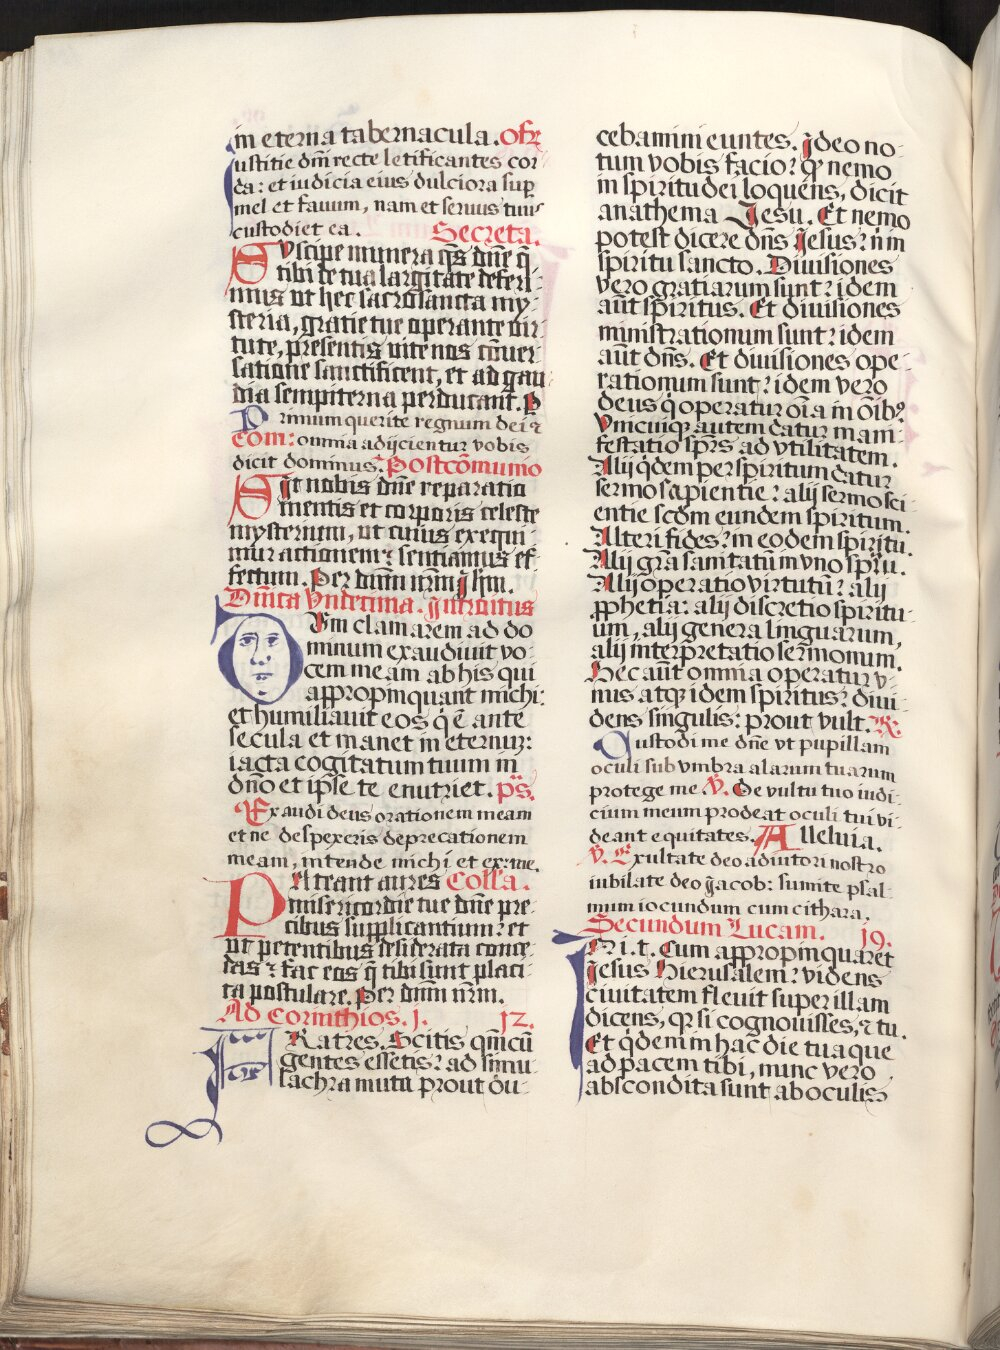 in eterna tabernacula. Ofř
Iustitie dñi recte letificantes cor-
da: et iudicia eius dulciora sup̱
mel et fauum, nam et seruus tuus
custodiet ea. Secreta.
SVscipe munera q̃s dñe q̃
tibi de tua largitate deferi-
mus vt hec sacrosancta my-
steria, gratie tue operante vir-
tute, presentis vite nos cõuer-
satione sanctificent, et ad gau-
dia sempiterna perducant. P
Primum querite regnum dei ⁊
Com: omnia adijcientur vobis
dicit dominus. Postcõmunio
SIt nobis dñe reparatio
mentis et corporis celeste
mysterium, vt cuius exequi-
mur actionem: sentiamus ef-
fectum. Per dñum nr̃m Iħm.
Dñica Vndecima. Introitus
DVm clamarem ad do
minum exaudiuit vo-
cem meam ab his qui
appropinquant michi:
et humiliauit eos q̇ ẽ ante
secula et manet in eternuz:
iacta cogitatum tuum in
dño et ipse te enutriet. ps̃.
Exaudi deus orationem meam
et ne despexeris deprecationem
meam, intende michi et ex. me.
PAteant aures Colla.
misericordie tue dñe pre-
cibus supplicantium: et
vt petentibus desiderata conce-
das: fac eos q̃ tibi sunt placi-
ta postulare. Per dñum nr̃m.
Ad Corinthios. j. 12.
FRatres. Scitis qm̃ cũ
gentes essetis: ad simu-
lachra muta prout du-
cebamini euntes. Ideo no-
tum vobis facio: q̇ nemo
in spiritu dei loquens, dicit
anathema Iesu. Et nemo
potest dicere dñs Iesus: n̄ in
spiritu sancto. Diuisiones
vero gratiarum sunt: idem
aũt spiritus. Et diuisiones
ministrationum sunt: idem
aũt dñs. Et diuisiones ope-
rationum sunt: idem vero
deus q̇ operatur oĩa in oĩb9
Vnicuiq; autem datur mani-
festatio spũs ad vtilitatem.
Alij q̇dem per spiritum datur
sermo sapientie: alij sermo sci-
entie scdm eundem spiritum.
Alteri fides: in eodem spiritu.
Alij grã sanitatũ in vno spũ.
Alij operatio virtutũ: alij
ꝓphetia: alij discretio spiritu-
um, alij genera linguarum,
alij interpretatio sermonum.
Hec aũt omnia operatur v-
nus atq; idem spiritus: diui-
dens singulis: prout vult. R.
Custodi me dñe vt pupillam
oculi sub vmbra alarum tuarum
protege me V. De vultu tuo iudi-
cium meum prodeat oculi tui vi-
deant equitates. Alleluia.
V. Exultate deo adiutori nostro
iubilate deo Jacob: sumite psal-
mum iocundum cum cithara.
Secundum Lucam. 19.
IN i. t. Cum appropinquaret
Jesus Hierusalem: videns
ciuitatem fleuit super illam
dicens, qr si cognouisses, ⁊ tu.
Et q̇dem in hac die tua que
ad pacem tibi, nunc vero
abscondita sunt ab oculis